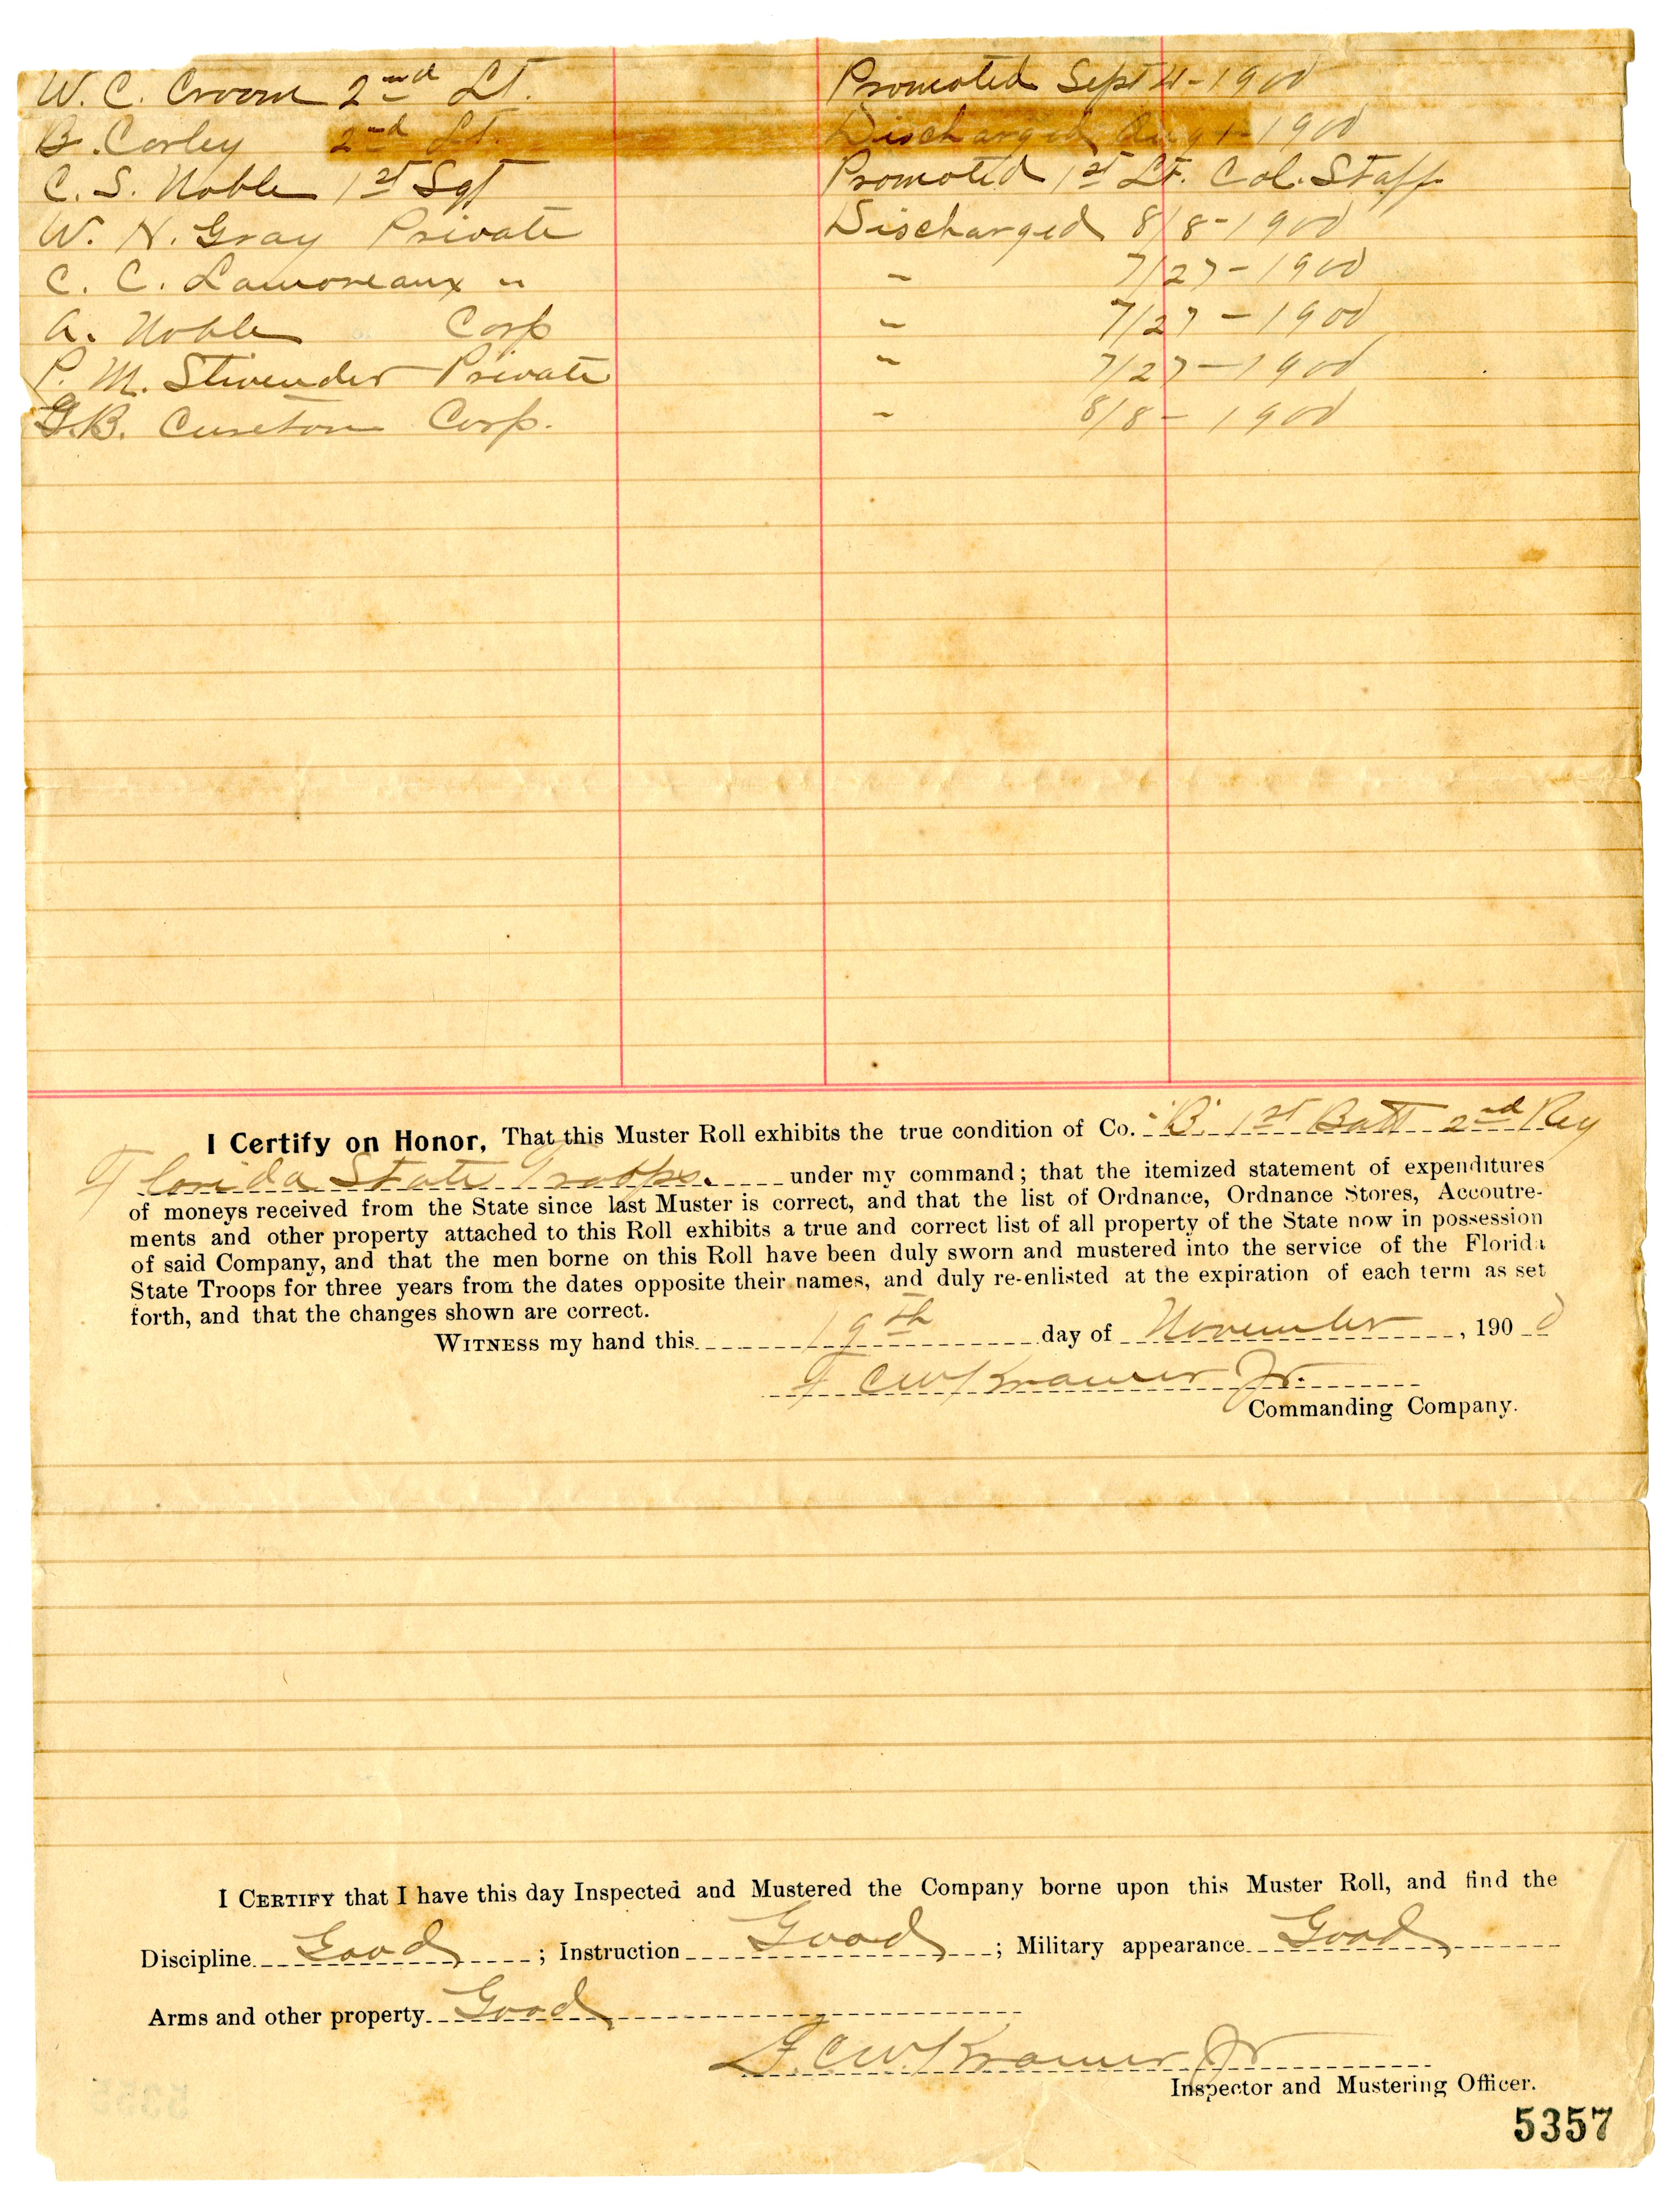 W. C. Croom 2nd Lt. Promoted Sept 4-1900
B. Corley 2nd Lt. Discharged Aug 1-1900
C. S. Noble 1st Sgt Promoted 1st Lt. Col. Staff
W. H. Gray Private Discharged 8/8-1900
C. C. Lamoreaux " " 7/27-1900
A. Noble Corp " 7/27-1900
P. M. Stivender Private " 7/27-1900
G.B. Cureton Corp. " 8/8-1900
I Certify on Honor, That this Muster Roll exhibits the true condition of Co. "B" 1st Batt 2nd Reg
Florida State Troops. under my command; that the itemized statement of expenditures
of moneys received from the State since last Muster is correct, and that the list of Ordnance, Ordnance Stores, Accoutre-
ments and other property attached to this Roll exhibits a true and correct list of all property of the State now in possession
of said Company, and that the men borne on this Roll have been duly sworn and mustered into the service of the Florida
State Troops for three years from the dates opposite their names, and duly re-enlisted at the expiration of each term as set
forth, and that the changes shown are correct.
WITNESS my hand this 19th day of November, 1900
F C W Kramer Jr.
Commanding Company.
I CERTIFY that I have this day Inspected and Mustered the Company borne upon this Muster Roll, and find the
Discipline Good; Instruction Good; Military appearance Good
Arms and other property Good
F. C W. Kramer Jr
Inspector and Mustering Officer.
5357